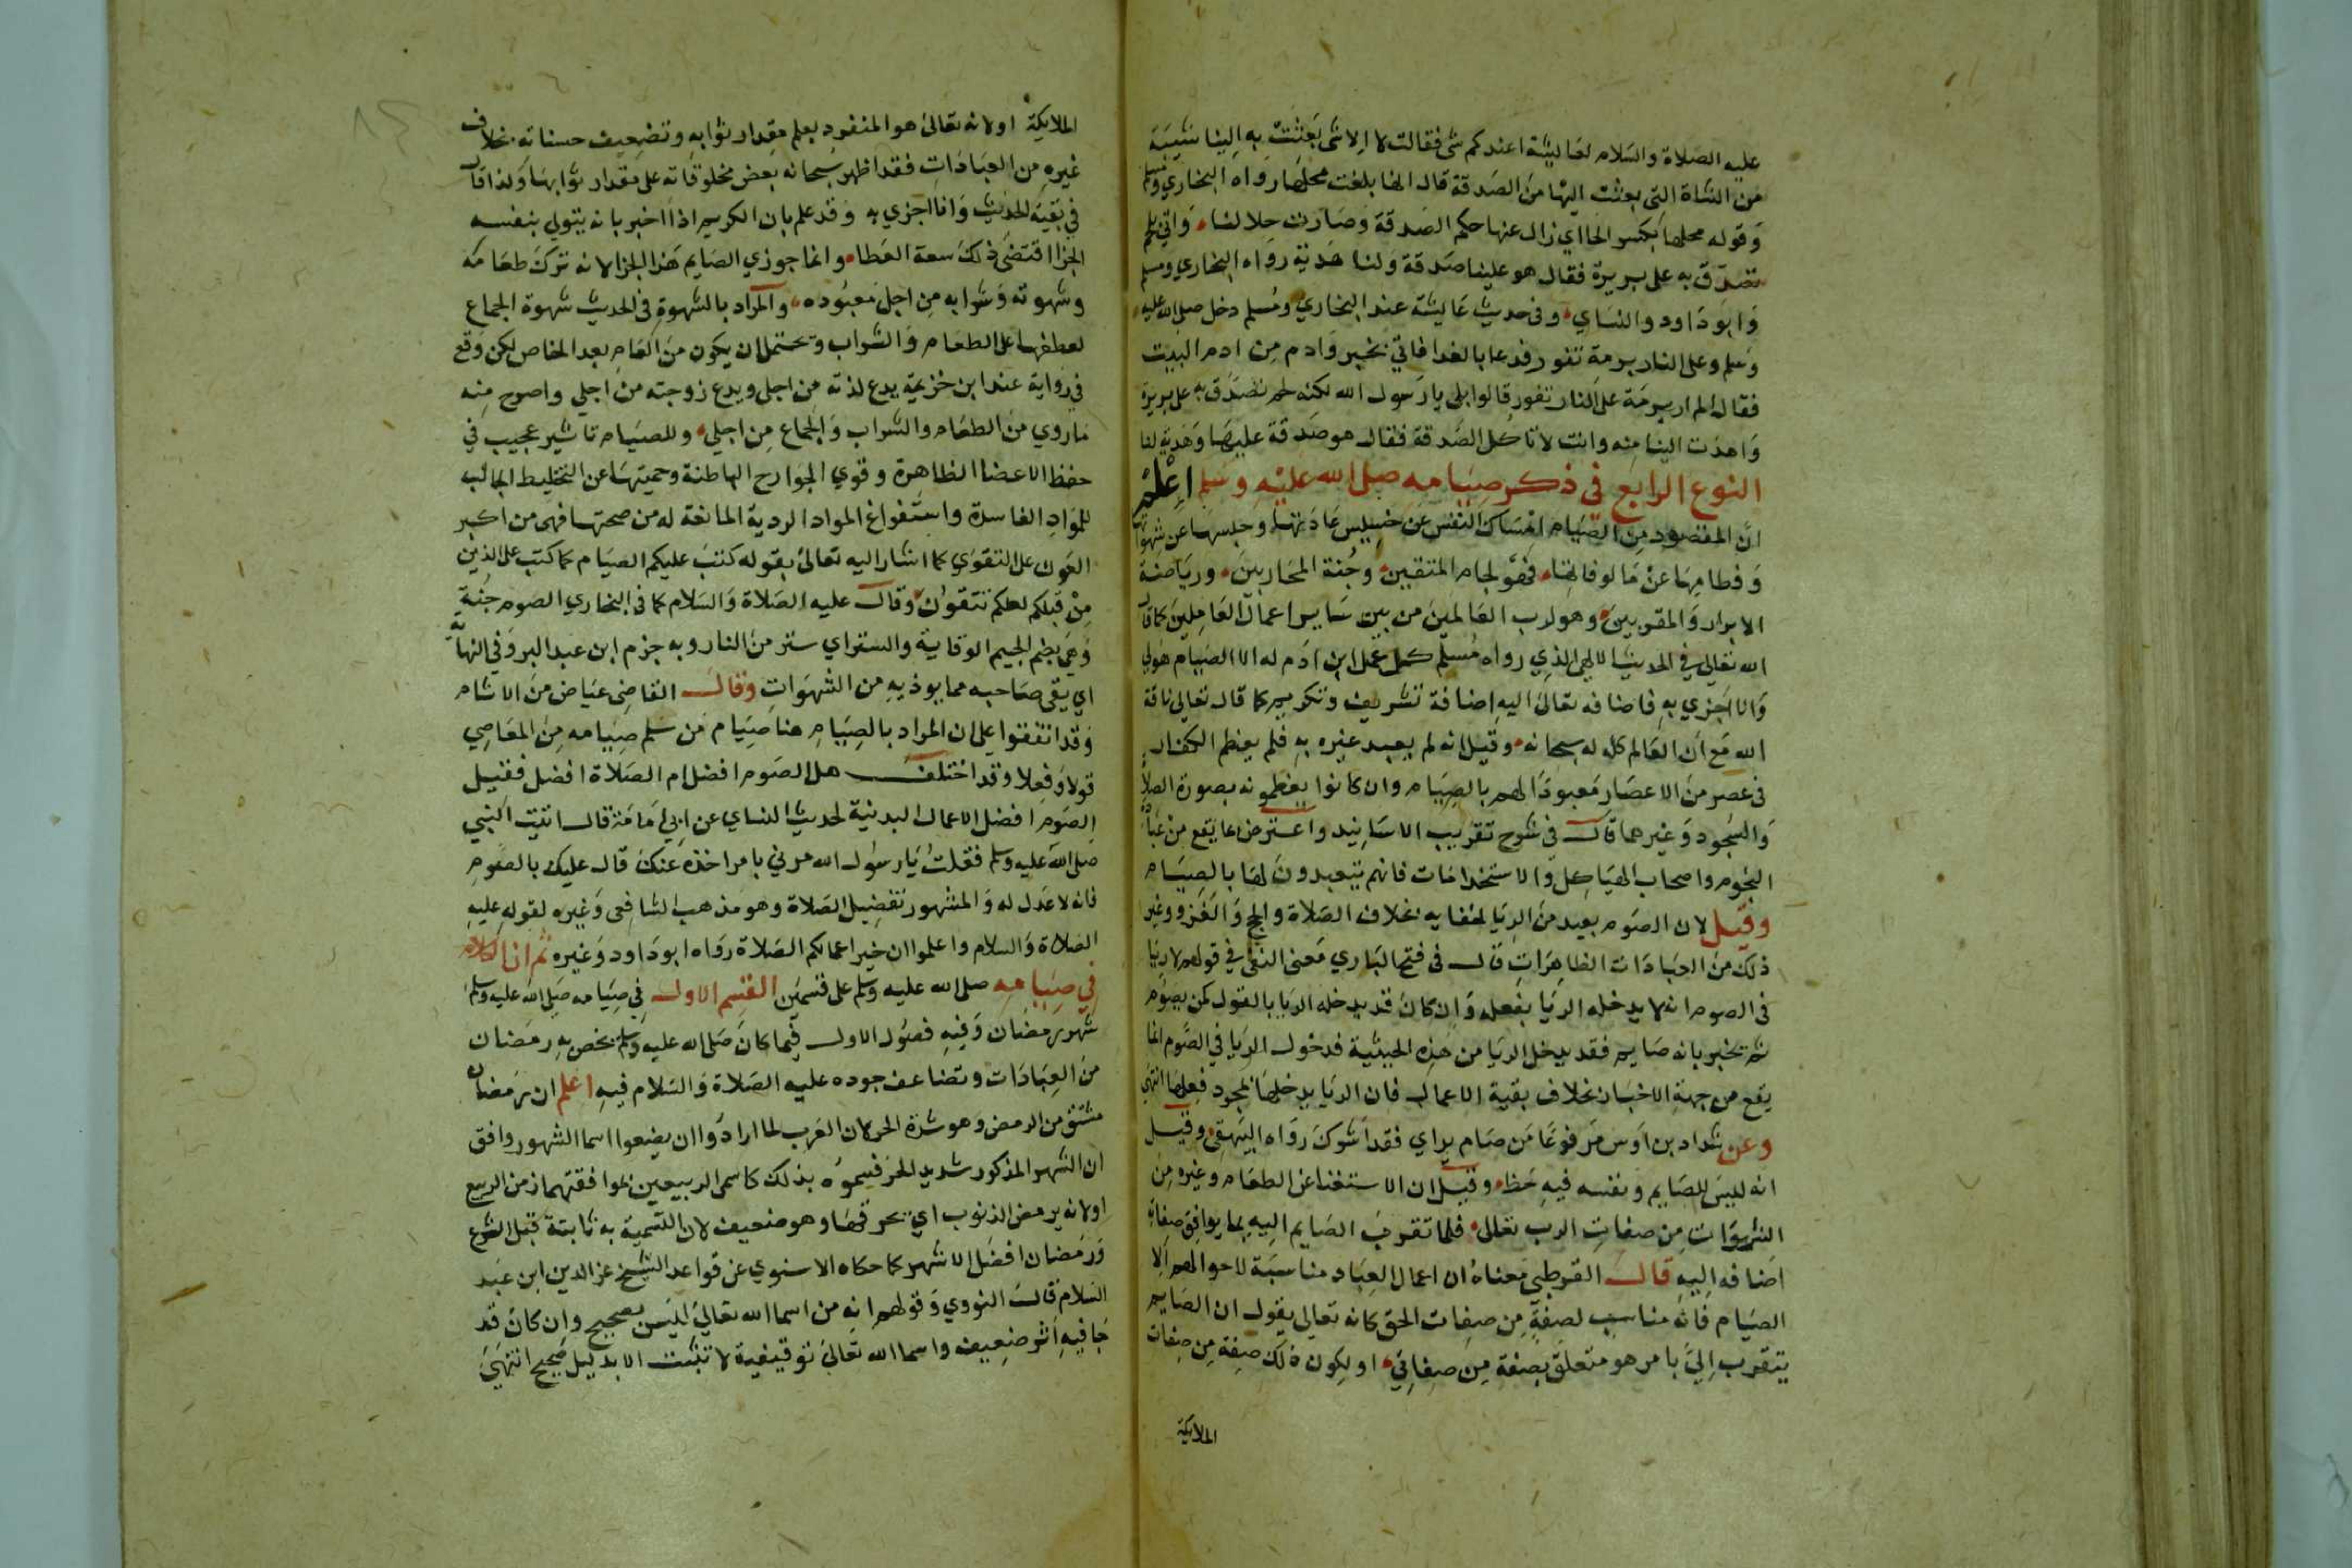 عليه الصلاة والسلام لعائشة اعندكم شى فقالت لا الا شى بعثت به الينا نسيبة
من الشاة التى بعثت اليها من الصدقة قال انها بلغت محلها رواه البخاري ومسلم
وقوله محلها بكسر الحا اي زال عنها حكم الصدقة وصارت حلا لنا واتي بلحم
تصدق به على بريرة فقال هو علينا صدقة ولنا هدية رواه البخاري ومسلم
وابو داود والنساي وفى حديث عايشة عند البخاري ومسلم دخل صلى الله عليه
وسلم وعلى النار برمة تفور فدعا بالغدا فاتي بخبز وادم من ادم البيت
فقال الم ار برمة على النار تفور قالوا بلى يا رسول الله لكنه لحم تصدق به على بريرة
واهدت الينا منه وانت لا تاكل الصدقة فقال هو صدقة عليها وهدية لنا
النوع الرابع في ذكر صيامه صلى الله عليه وسلم اعلم
ان المقصود من الصيام امساك النفس عن خسيس عاداتها وحبسها عن شهواتها
وفطامها عن مالوفاتها فهو لجام المتقين وجنة المحاربين ورياضة
الابرار والمقربين وهو لرب العالمين من بين ساير اعمال العاملين كما قال
الله تعالى في الحديث الالهي الذي رواه مسلم كل عمل ابن ادم له الا الصيام هو لي
وانا اجزي به فاضافه تعالى اليه اضافة تشريف وتكريم كما قال تعالى ناقة
الله مع ان العالم كله له سبحانه وقيل انه لم يعبد غيره به فلم يعظم الكفار
فى عصر من الاعصار معبودا لهم بالصيام وان كانوا يعظمونه بصورة الصلاة
والسجود وغيرهما قال في شرح تقريب الاسانيد واعترض بما يقع من عباد
النجوم واصحاب الهياكل والاستخدامات فانهم يتعبدون لها بالصيام
وقيل لان الصوم بعيد من الريا لخفايه بخلاف الصلاة والحج والغزو وغير
ذلك من العبادات الظاهرات قال فى فتح الباري معنى النفي في قولهم لا ريا
فى الصوم انه لا يدخله الريا بفعله وان كان قد يدخله الريا بالقول كمن يصوم
ثم تخبر بانه صايم فقد يدخل الريا من هذه الحيثية فدخول الريا في الصوم انما
يقع من جهة الاخبار بخلاف بقية الاعمال فان الريا يدخلها بمجرد فعلها انتهى
وعن شداد بن اوس مرفوعا من صام يراي فقد اشرك رواه البيهقى وقيل
انه ليس للصايم ونفسه فيه حظ وقيل ان الاستغنا عن الطعام وغيره من
الشهوات من صفات الرب تعالى فلما تقرب الصايم اليه بما يوافق صفاته
اضافه اليه قال القرطبى معناه ان اعمال العباد مناسبة لاحوالهم الا
الصيام فانه مناسب لصفة من صفات الحق كانه تعالى يقول ان الصايم
يتقرب الي بامر هو متعلق بصفة من صفاتي او لكون ذلك صفة من صفات
الملايكة
الملايكة او لانه تعالى هو المنفرد بعلم مقدار ثوابه وتضعيف حسناته بخلاف
غيره من العبادات فقد اظهر سبحانه بعض مخلوقاته على مقدار ثوابها ولذا قال
في بقية الحديث وانا اجزي به وقد علم بان الكريم اذا اخبر بانه يتولي بنفسه
الجزا اقتضى ذلك سعة العطا وانما جوزي الصايم هذا الجزا لانه ترك طعامه
وشهوته وشرابه من اجل معبوده والمراد بالشهوة في الحديث شهوة الجماع
لعطفها على الطعام والشراب ويحتمل ان يكون من العام بعد الخاص لكن وقع
في رواية عند ابن خزيمة يدع لذته من اجلي ويدع زوجته من اجلي واصرح منه
ما روي من الطعام والشراب والجماع من اجلي وللصيام تاثير عجيب في
حفظ الاعضا الظاهرة وقوي الجوارح الباطنة وحميتها عن التخليط الجالب
للمواد الفاسدة واستفراغ المواد الردية المانعة له من صحتها فهى من اكبر
العون على التقوي كما اشار اليه تعالى بقوله كتب عليكم الصيام كما كتب على الذين
من قبلكم لعلكم تتقون وقال عليه الصلاة والسلام كما فى البخاري الصوم جنة
وهي بضم الجيم الوقاية والستر اي ستر من النار وبه جزم ابن عبد البر وفي النهاية
اي يقى صاحبه مما يوذيه من الشهوات وقال القاضى عياض من الاثام
وقد اتفقوا على ان المراد بالصيام هنا صيام من سلم صيامه من المعاصي
قولا وفعلا وقد اختلف هل الصوم افضل ام الصلاة افضل فقيل
الصوم افضل الاعمال البدنية لحديث النساي عن ابي امامة قال اتيت النبي
صلى الله عليه وسلم فقلت يا رسول الله مرني بامر اخذه عنك قال عليك بالصوم
فانه لا عدل له والمشهور تفضيل الصلاة وهو مذهب الشافعى وغيره لقوله عليه
الصلاة والسلام واعلموا ان خير اعمالكم الصلاة رواه ابو داود وغيره ثم ان الكلام
في صيامه صلى الله عليه وسلم على قسمين القسم الاول في صيامه صلى الله عليه وسلم
شهر رمضان وفيه فصول الاول فيما كان صلى الله عليه وسلم يخص به رمضان
من العبادات وتضاعف جوده عليه الصلاة والسلام فيه اعلم ان رمضان
مشتق من الرمض وهو شدة الحر لان العرب لما ارادوا ان يضعوا اسما الشهور وافق
ان الشهر المذكور شديد الحر فسموه بذلك كما سمي الربيعين لموافقتهما زمن الربيع
او لانه يرمض الذنوب اي يحرقها وهو ضعيف لان التسمية به ثابتة قبل الشرع
ورمضان افضل الاشهر كما حكاه الاسنوي عن قواعد الشيخ عز الدين ابن عبد
السلام قال النووي وقولهم انه من اسما الله تعالى ليس بصحيح وان كان قد
جا فيه اثر ضعيف واسما الله تعالى توقيفية لا تثبت الا بدليل صحيح انتهى